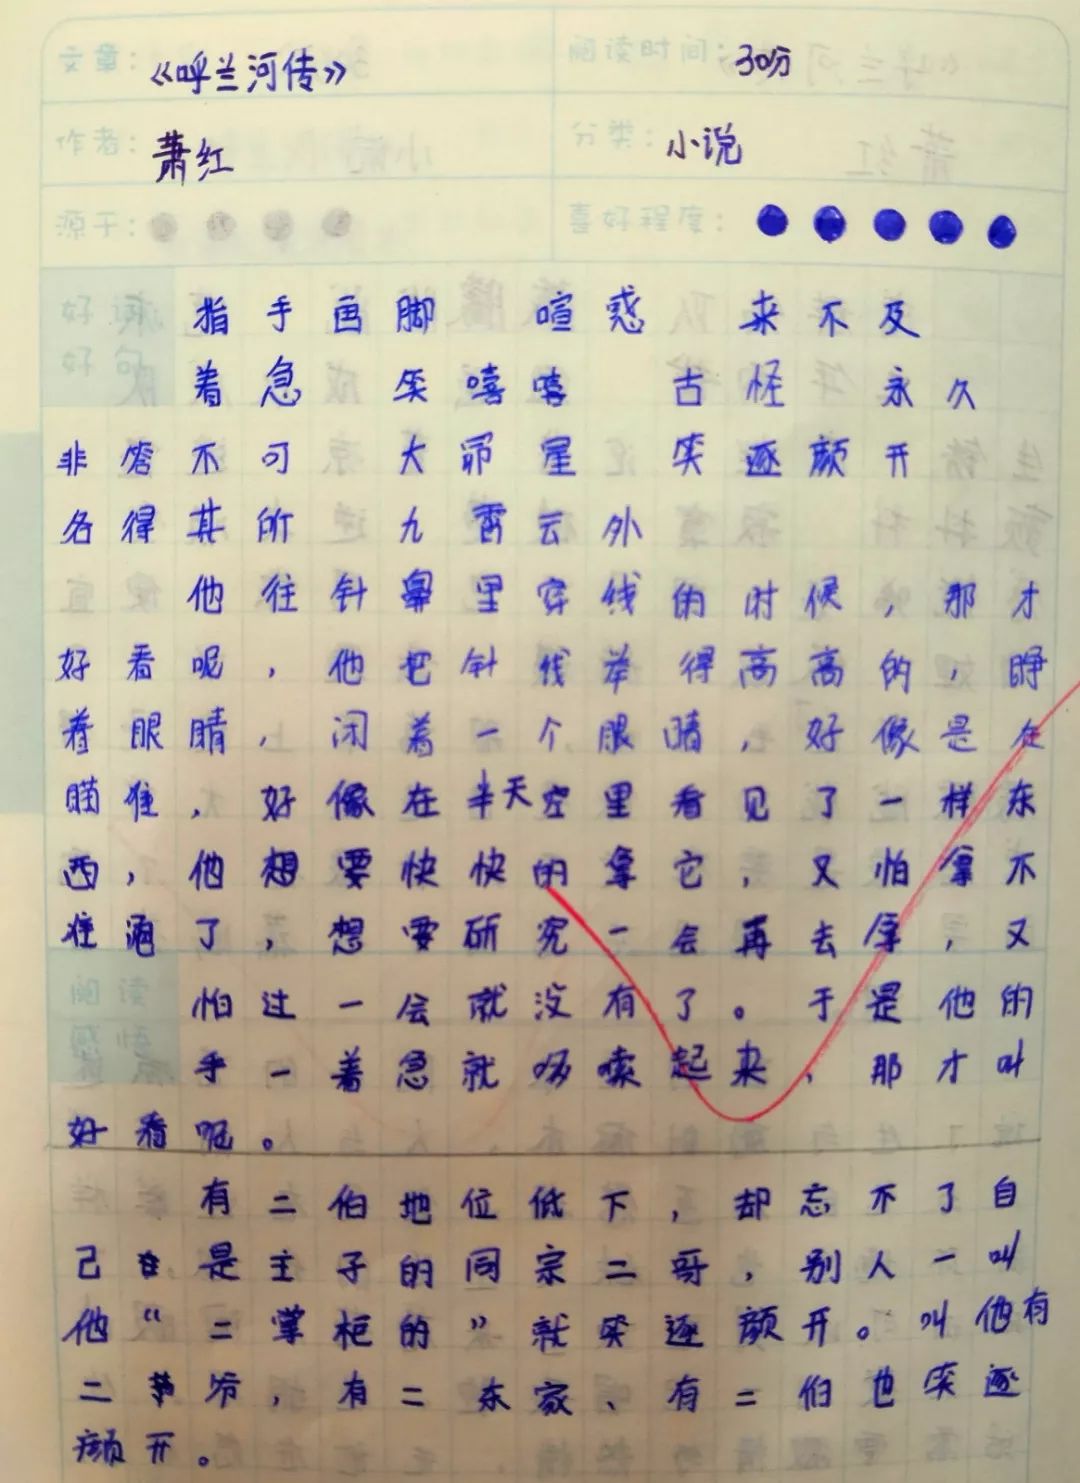 文章：《呼兰河传》 阅读时间：30分
作者：萧红 分类：小说
源于： 喜好程度：
好词 指手画脚 喧惑 来不及
好句 着急 笑嘻嘻 古怪 永久
非答不可 大昴星 笑逐颜开
各得其所 九霄云外
他往针鼻里穿线的时候，那才
好看呢，他把针线举得高高的，睁
着眼睛，闭着一个眼睛，好像是在
瞄准，好像在半天空里看见了一样东
西，他想要快快的拿它，又怕拿不
准跑了，想要研究一会再去拿，又
阅读 怕过一会就没有了。于是他的
感悟 手一着急就哆嗦起来，那才叫
好看呢。
有二伯地位低下，却忘不了自
己是主子的同宗二哥，别人一叫
他“二掌柜的”就笑逐颜开。叫他有
二爷，有二东家、有二伯也笑逐
颜开。